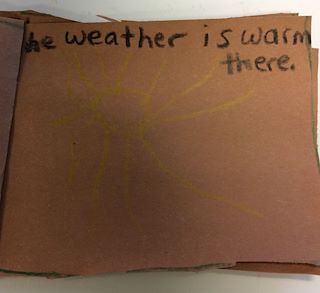 he weather is warm
there.